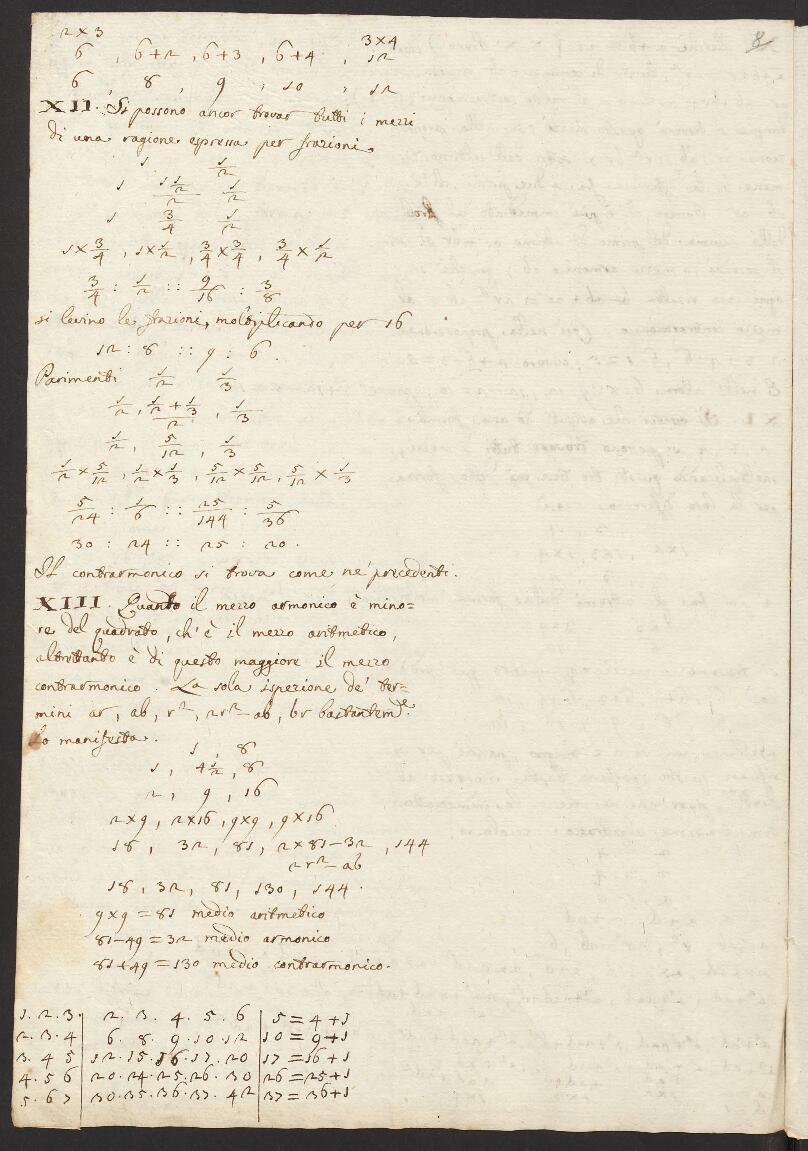 8
2×3 3×4
6 , 6+2 , 6+3 , 6+4 , 12
6 , 8 , 9 , 10 , 12
XII. Si possono ancor trovar tutti i mezzi
di una ragione espressa per frazioni
1 1/2
1 1 1/2 / 2 1/2
1 3/4 1/2
1×3/4 , 1×1/2 , 3/4×3/4 , 3/4×1/2
3/4 : 1/2 :: 9/16 : 3/8
si levino le frazioni, moltiplicando per 16
12 : 8 :: 9 : 6 .
Parimenti 1/2 1/3
1/2 , 1/2+1/3 / 2 , 1/3
1/2 , 5/12 , 1/3
1/2×5/12 , 1/2×1/3 , 5/12×5/12 , 5/12×1/3
5/24 : 1/6 :: 25/144 : 5/36
30 : 24 :: 25 : 20 .
Il contrarmonico si trova come ne' precedenti.
XIII. Quanto il mezzo armonico è mino-
re del quadrato, ch' è il mezzo aritmetico,
altrettanto è di questo maggiore il mezzo
contrarmonico. La sola ispezione de' ter=
mini ar, ab, r², 2r²-ab, br bastantemte.
lo manifesta.
1 , 8
1 , 4 1/2 , 8
2 , 9 , 16
2×9 , 2×16 , 9×9 , 9×16
18 , 32 , 81 , 2×81-32 , 144
2r²-ab
18 , 32 , 81 , 130 , 144 .
9×9 = 81 medio aritmetico
81-49 = 32 medio armonico
81+49 = 130 medio contrarmonico.
1. 2. 3. 2. 3. 4. 5. 6 5 = 4+1
2. 3. 4 6. 8. 9. 10. 12 10 = 9+1
3. 4 5 12. 15. 16. 17. 20 17 = 16+1
4. 5 6 20. 24. 25. 26. 30 26 = 25+1
5. 6 7 30. 35. 36. 37. 42 37 = 36+1